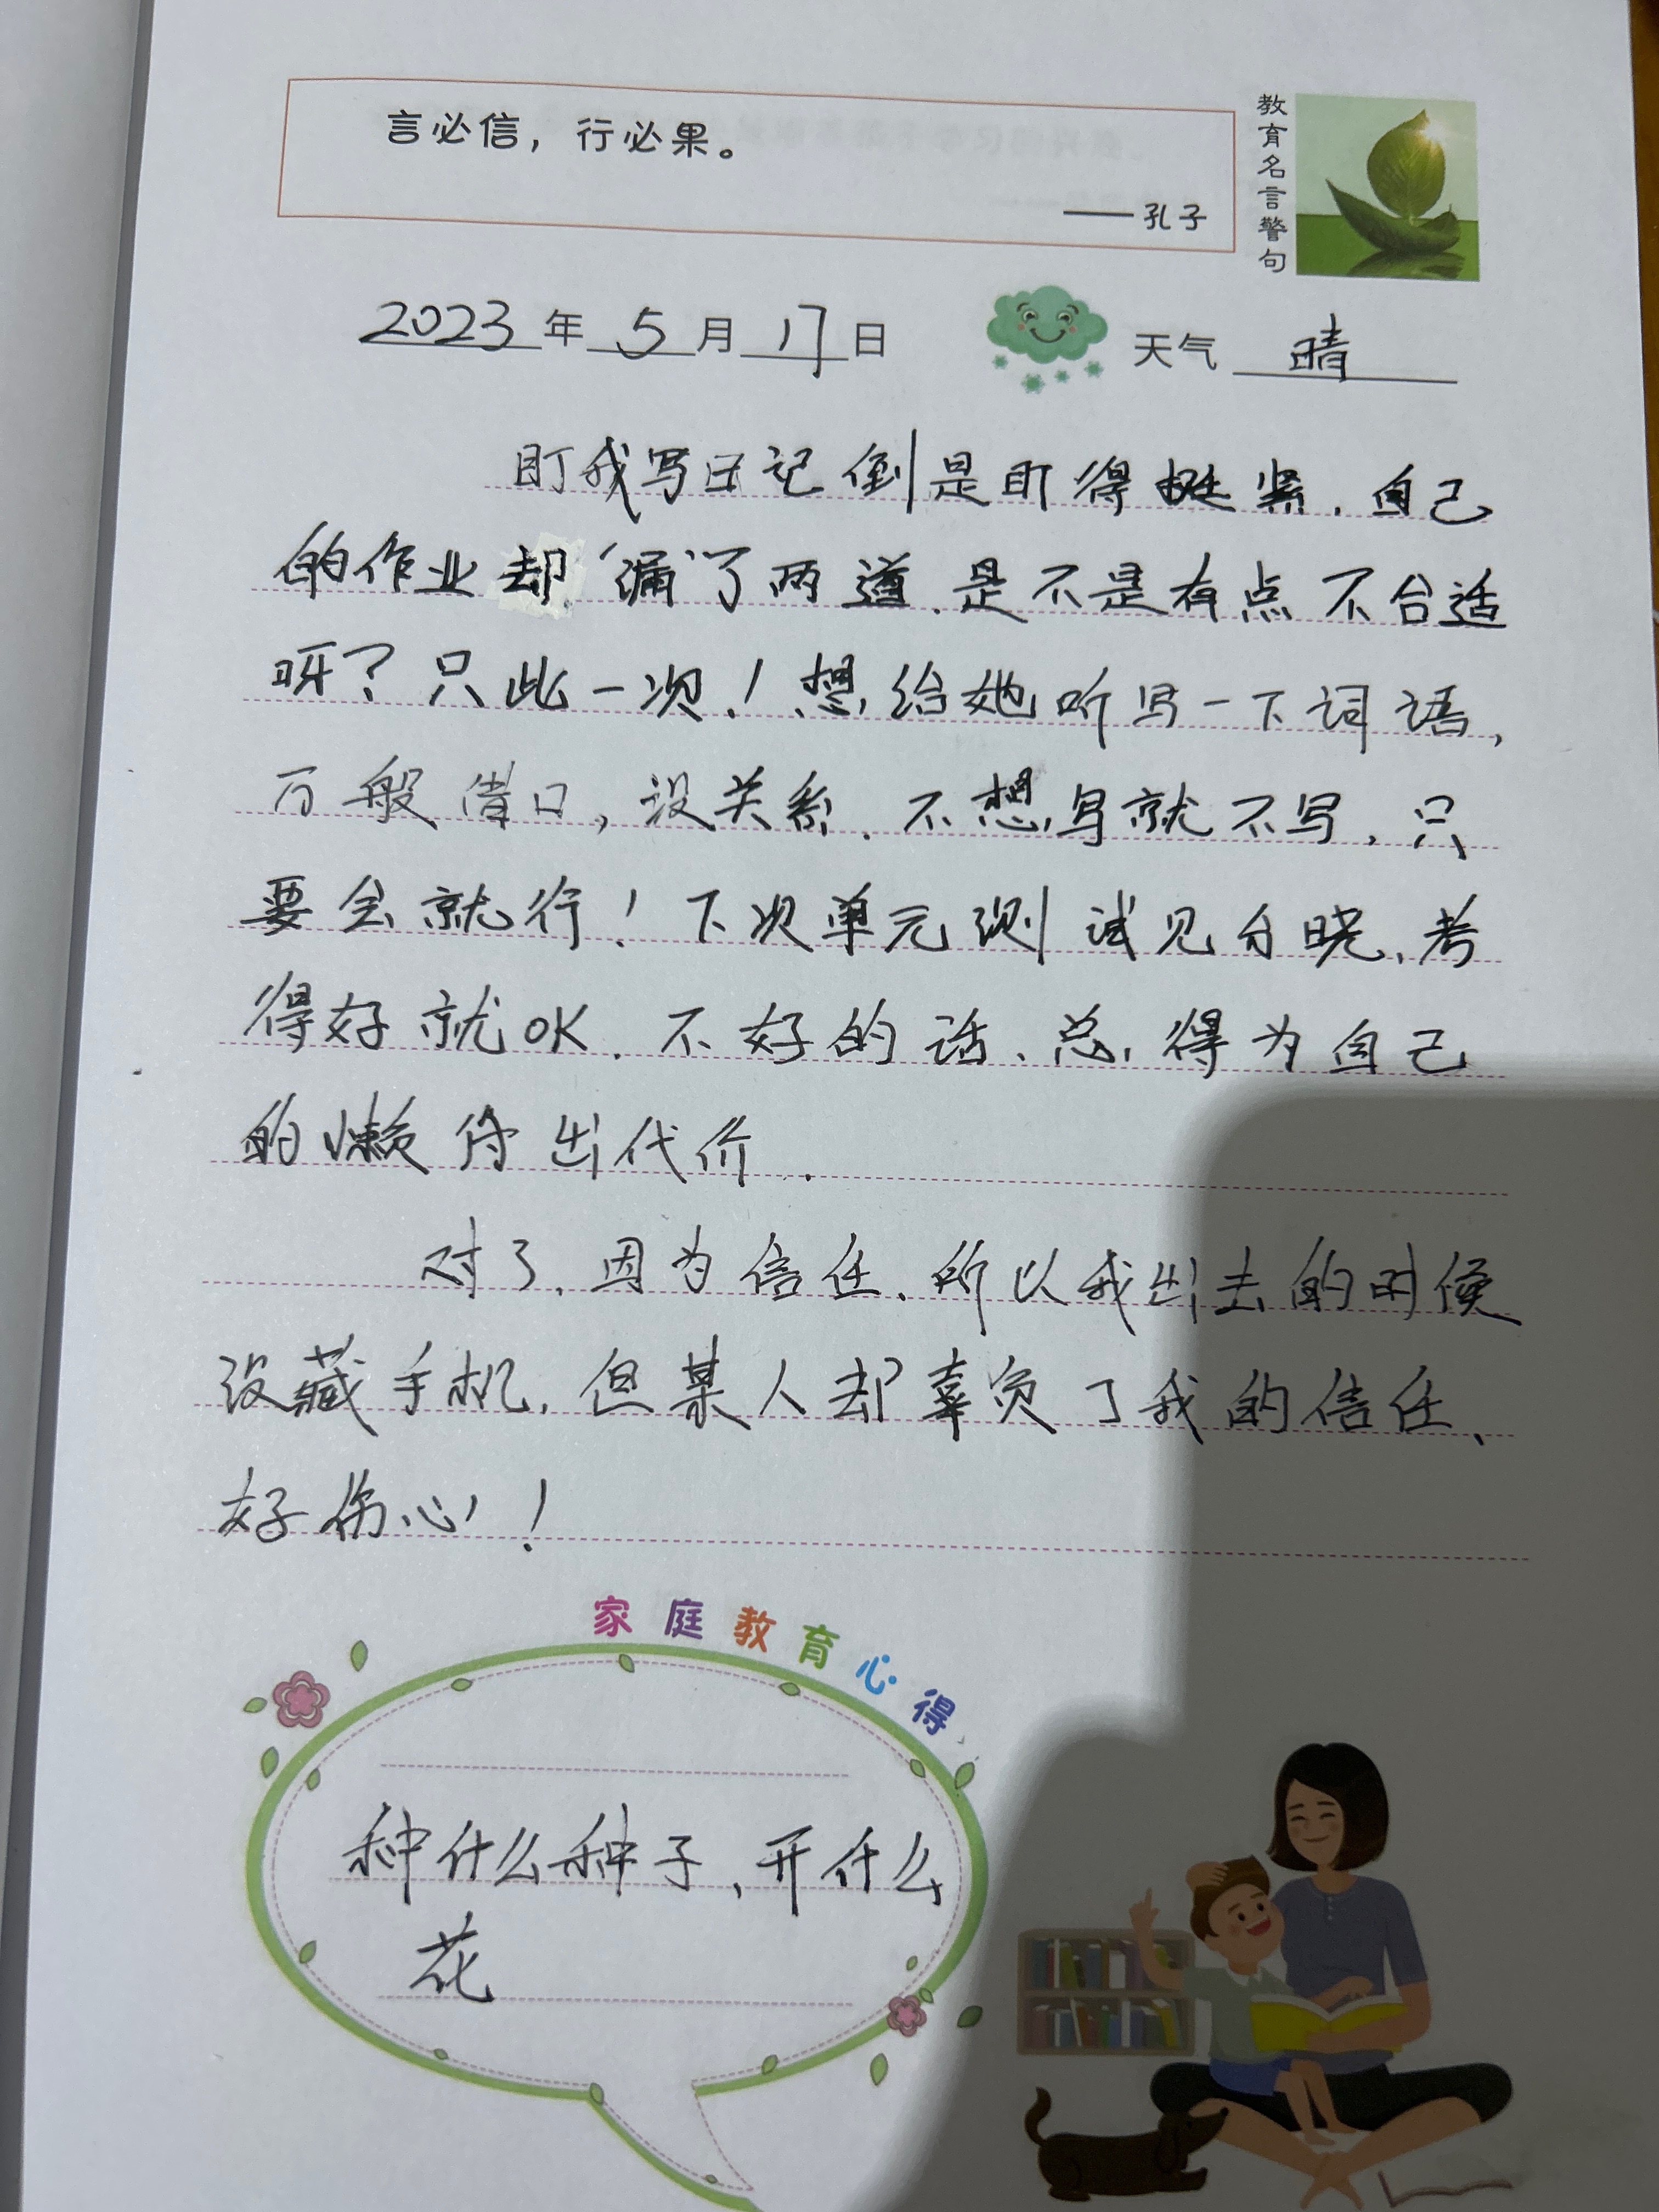 言必信，行必果。
——孔子
教育名言警句
2023年5月17日 天气 晴
盯我写日记倒是盯得挺紧，自己
的作业却“漏”了两道，是不是有点不合适
呀？只此一次！想给她听写一下词语，
万般借口，没关系，不想写就不写，只
要会就行！下次单元测试见分晓，考
得好就OK，不好的话、总得为自己
的懒付出代价．
对了，因为信任，所以我出去的时候
没藏手机，但某人却辜负了我的信任、
好伤心！
家庭教育心得
种什么种子，开什么
花